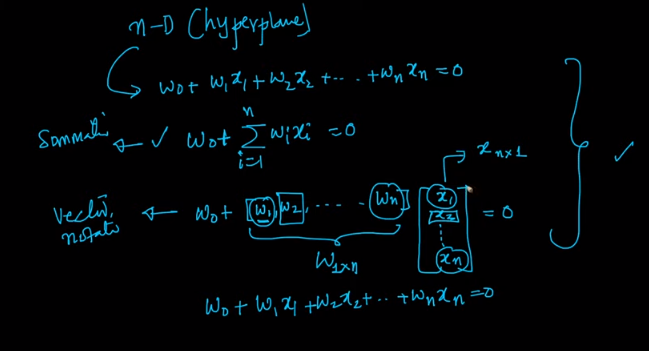 n-D (hyperplane)
w₀ + w₁x₁ + w₂x₂ + ... + wₙxₙ = 0
Sommati ← ✓ w₀ + ∑ᵢ₌₁ⁿ wᵢxᵢ = 0
xₙₓ₁
✓
Vector, notato ← w₀ + [w₁, w₂, ..... wₙ] [x₁ x₂ ⋮ xₙ] = 0
W₁ₓₙ
w₀ + w₁x₁ + w₂x₂ + ... + wₙxₙ = 0